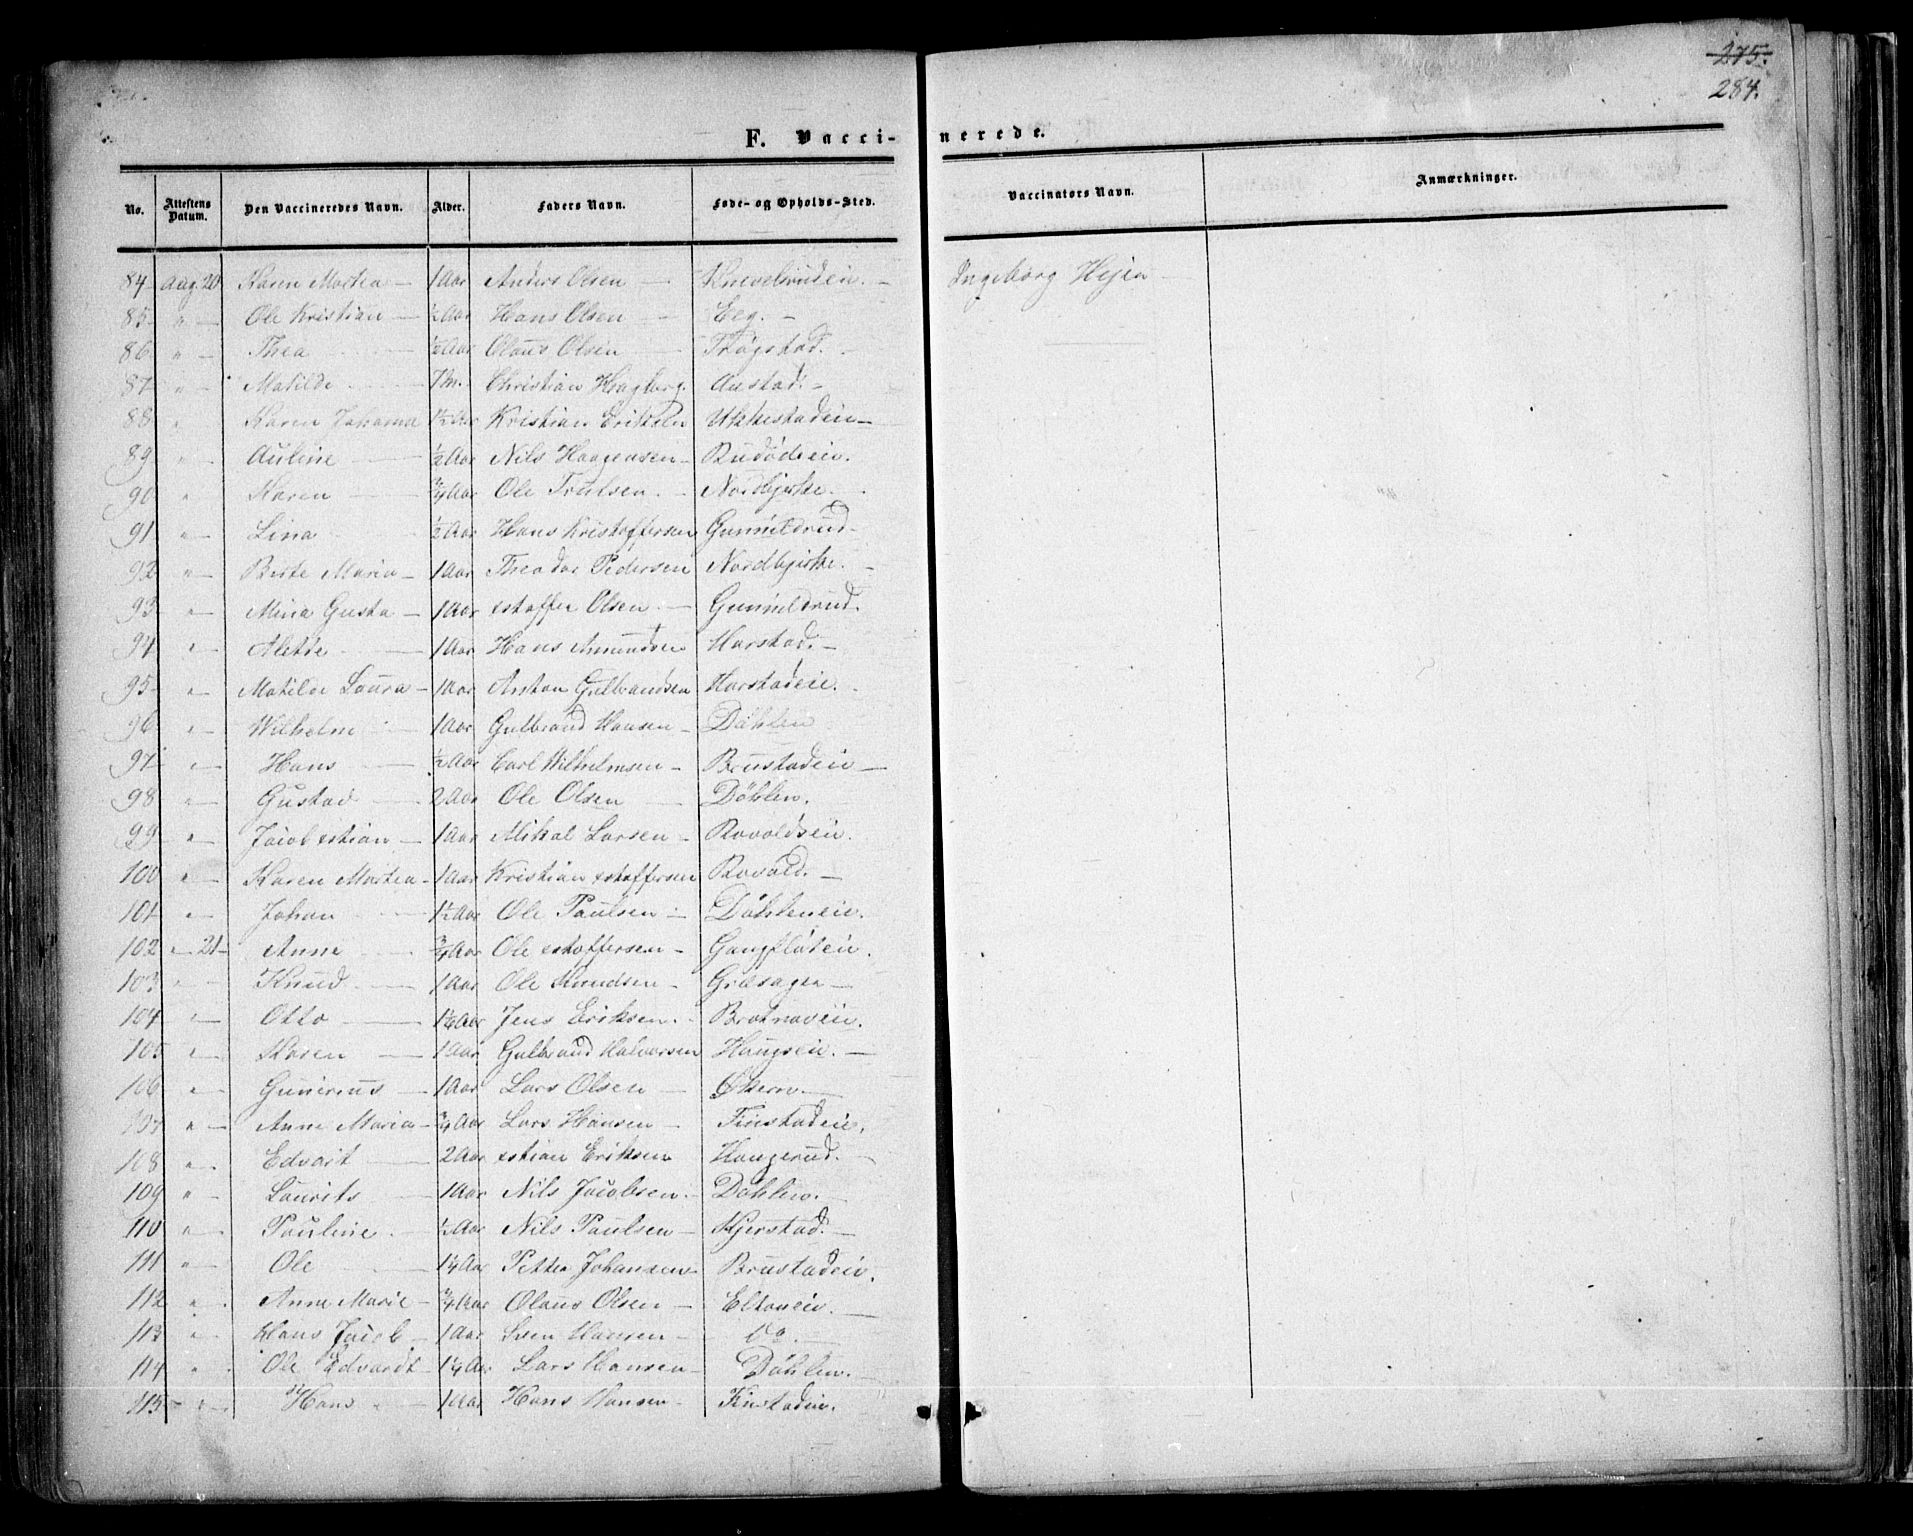 275.
284.
F. Vaccinerede.
No. Attestens Datum. Den Vaccineredes Navn. Alder. Faders Navn. Føde- og Opholds-Sted. Vaccinators Navn. Anmærkninger.
84 Aug. 20 Karen Martea — 1 Aar Anders Olsen — Knevelsrudeiu. — Ingeborg Hejen
85 " — Ole Kristian — ½ Aar Hans Olsen — Eeg. —
86 " — Thea — ½ Aar Olaus Olsen — Frøgstad. —
87 " — Matilde — 7 M. Christian Hagberg. Austad. —
88 " Karen Johanna 1½ Aar Kristian Eriksen Ukkestadeie —
89 " — Auline — ½ Aar Nils Haagensen — Rudødeie.
90 " — Karen — ¾ Aar Ole Trulsen. — Nordbyrke.
91 " — Lina ½ Aar Hans Kristoffersen Gunnildrud —
92 " — Berte Maria — 1 Aar Theodor Pedersen Nordbyrke. —
93 " — Mina Gusta — 1 Aar xstoffer Olsen — Gunnildrud.
94 " — Alette — 1 Aar Hans Amundsen Harstad. —
95 " — Matilde Laura — 1 Aar Anton Gulbrandsen Harstadeie.
96 " — Wilhelm 1 Aar Gulbrand Hansen — Døhlen
97 " — Hans — ½ Aar Carl Wilhelmsen — Brustadeie —
98 " — Gustav — 2 Aar Ole Olsen — Døhlen.
99 " — Jacob xstian — 1 Aar Mikal Larsen — Rovoldseie.
100 " — Karen Martea — 1 Aar Kristian xstoffersen Rovold. —
101 " — Johan 1½ Aar Ole Paulsen — Døhleneie.
102 " 21 — Anne ¾ Aar Ole xstoffersen — Gangfløteie.
103 " — Knud — 1 Aar Ole Knudsen — Græsager —
104 " — Otto — 1½ Aar Jens Eriksen. Brotnoveie.
105 " — Karen — 1 Aar Gulbrand Halvorsen Haugseie. —
106 " — Gunerius — 1 Aar Lars Olsen — Økern. —
107 " — Anne Maria — ¾ Aar Lars Hansen — Finstadeie.
108 " Edvart — 2 Aar xstian Eriksen Haugerud. —
109 " — Laurits — 1 Aar Nils Jacobsen. Døhlen. —
110 " — Pauline. — ½ Aar Nils Paulsen — Kjerstad. —
111 " — Ole 1¼ Aar Petter Johansen Brustadeie.
112 " Anne Marie — ¾ Aar Olaus Olsen — Eltoneie. —
113 " Hans Jacob — 1 Aar Sven Hansen — Do —
114 " Ole Edvardt — 1¼ Aar Lars Hansen — Døhlen. —
115 " — Hans — 1 Aar Hans Hansen — Finstadeie.